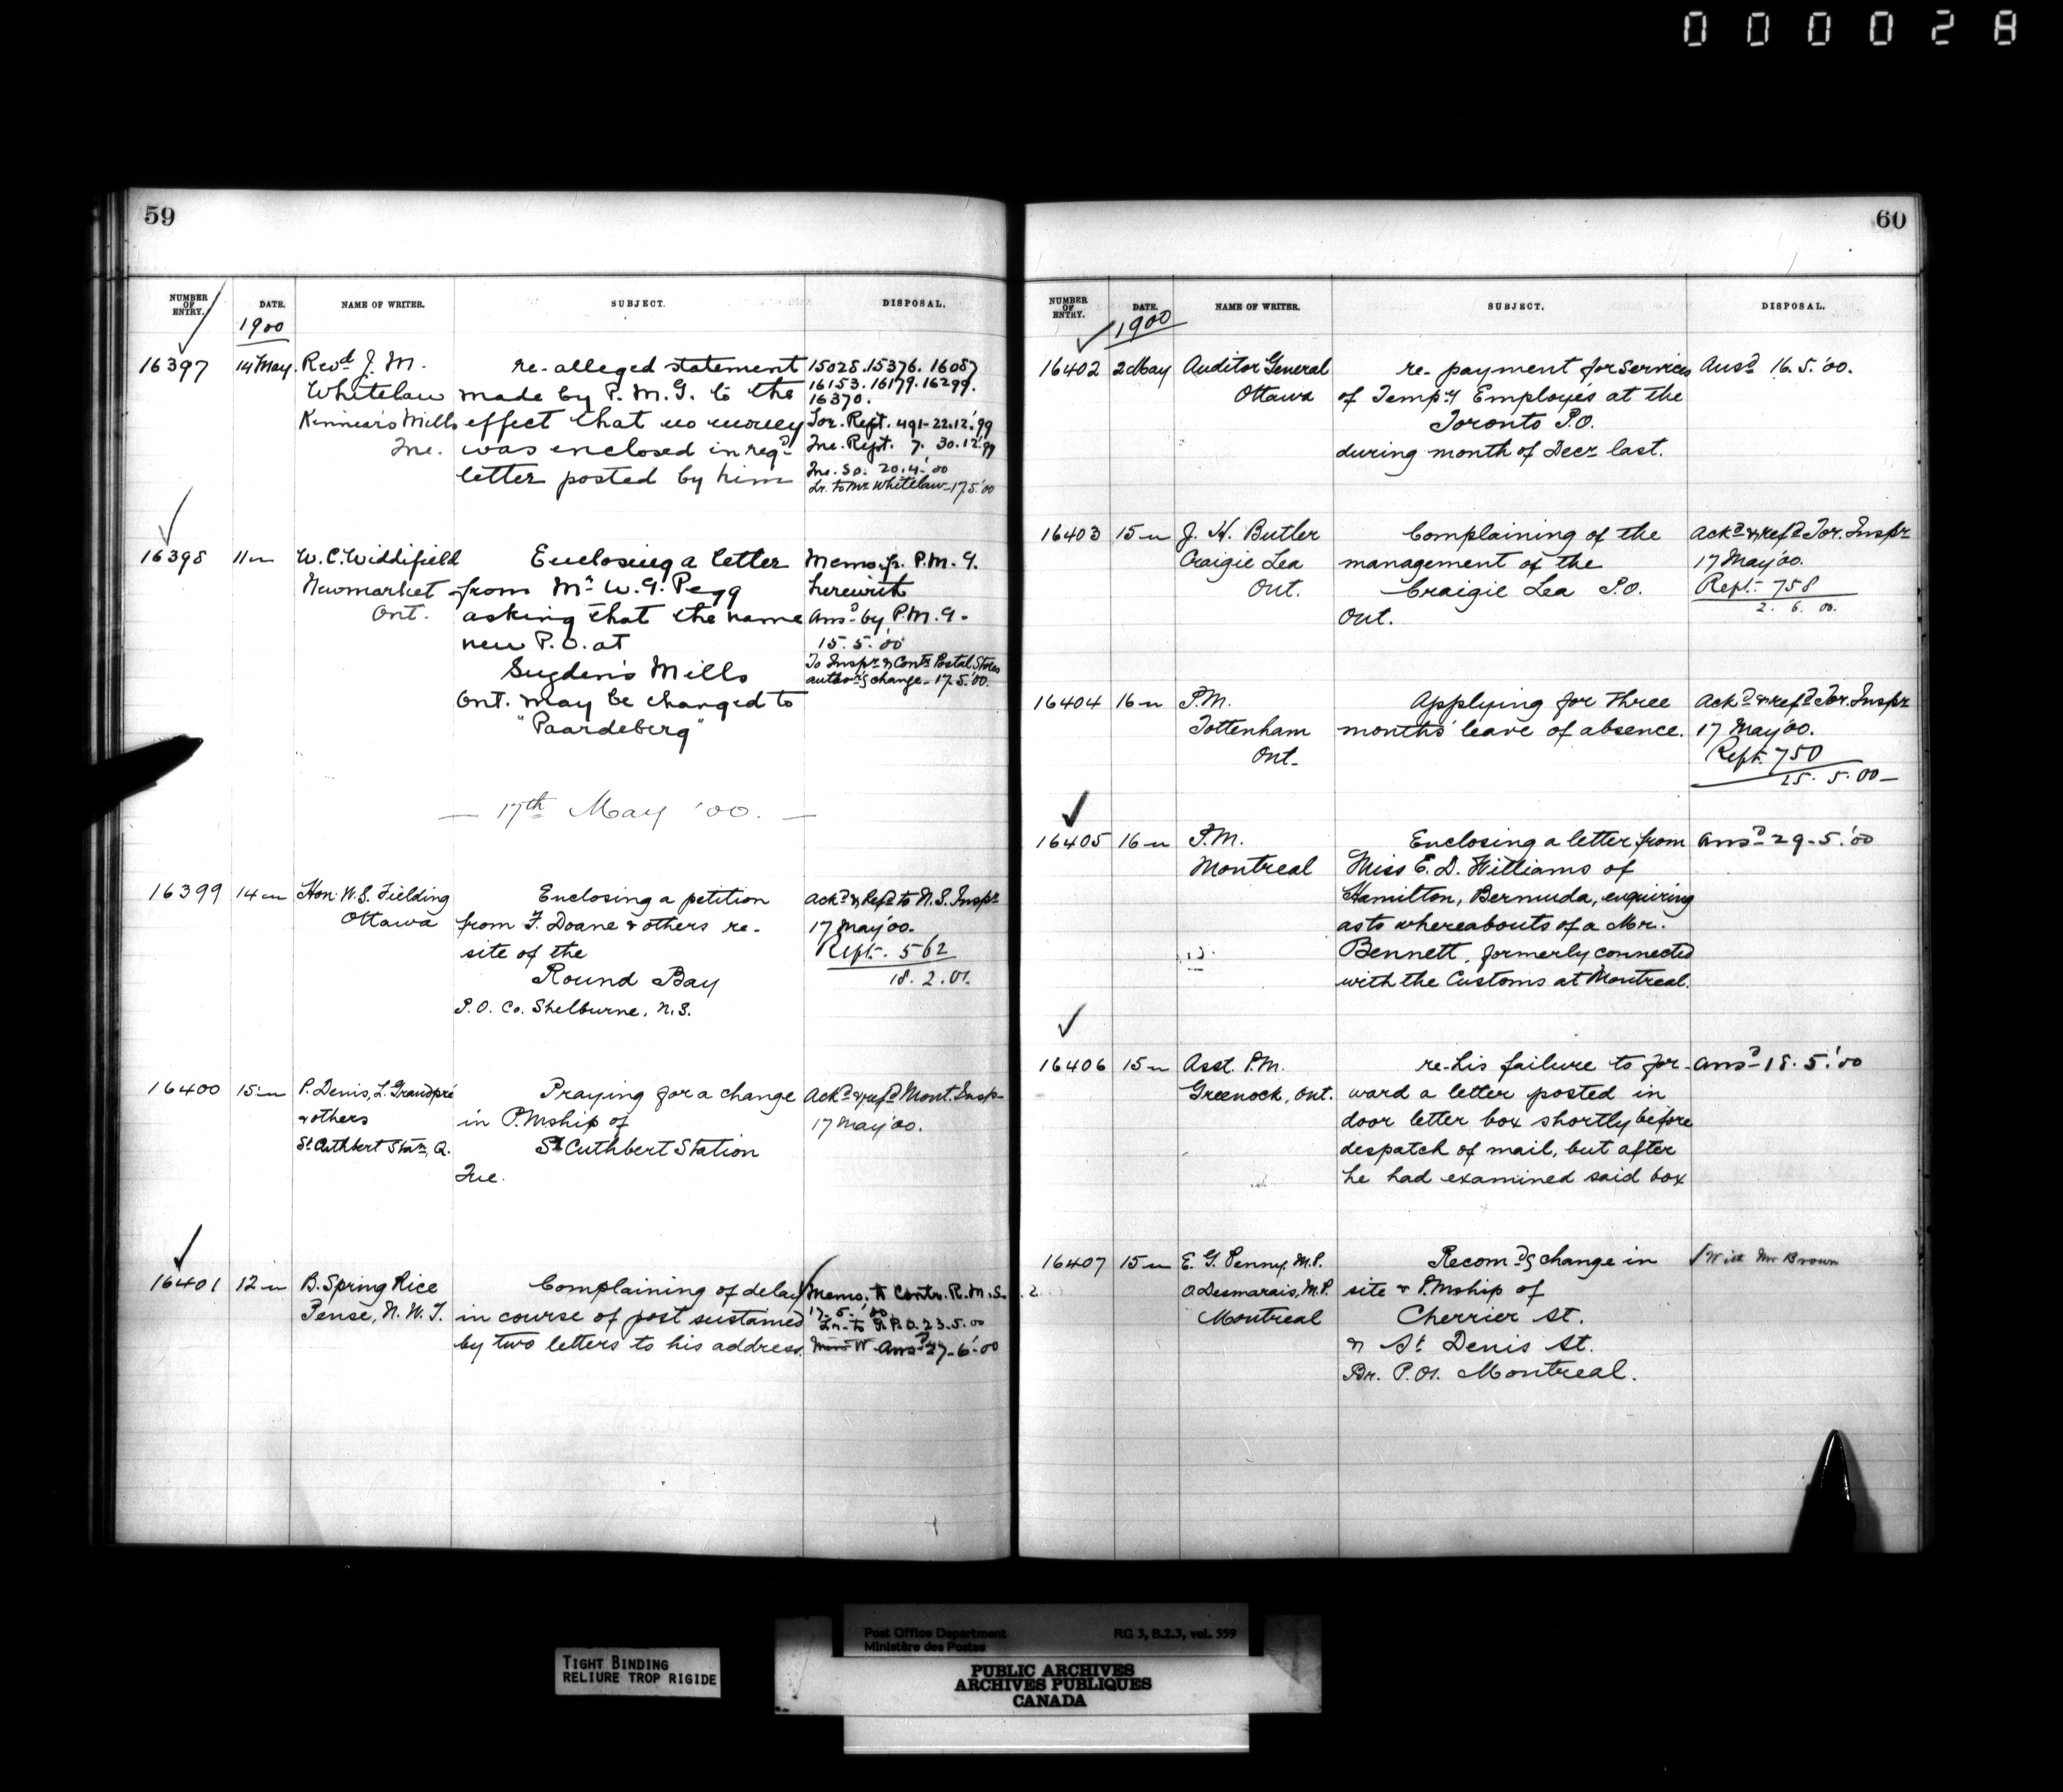 000028
59
NUMBER OF ENTRY. DATE. NAME OF WRITER. SUBJECT. DISPOSAL.
1900
16397 14 May Revd J. M. re-alleged statement 15028. 15376. 16087
Whitelaw made by P. M. G. to the 16153. 16179. 16299.
16370.
Kinnear's Mills effect that no money Tor. Rept. 491-22.12.'99
Que. was enclosed in regd Que. Rept. 7. 30.12.'99
letter posted by him Que. So. 20.4.'00
Lr. to Mr Whitelaw-17.5.'00
16398 11 " W. C. Widdifield Enclosing a letter Memo. fr. P.M.G.
Newmarket from Mr W. G. Pegg herewith
Ont. asking that the name Ansd by P.M.G-
new P.O. at 15.5.'00
Sugden's Mills To Inspr & Contr Postal Stores
Ont. may be changed to authorg change-17.5.'00.
"Paardeberg"
— 17th May '00. —
16399 14 " Hon. W. S. Fielding Enclosing a petition Ackd & Refd to N.S. Inspr
Ottawa from F. Doane & others re- 17 May '00.
site of the Rept. 562
Round Bay 18.2.01.
P.O. Co. Shelburne, N.S.
16400 15 " P. Denis, L. Grandpré Praying for a change Ackd & refd Mont. Inspr
& others in P.Mship of 17 May '00.
St Cuthbert Statn, Q. St Cuthbert Station
Que.
16401 12 " B. Spring Rice Complaining of delay Memo. to Contr. R.M.S.
17.5.'00
Pense, N.W.T. in course of post sustained Lr. to G.P.O. 23.5.00
by two letters to his address. Ansd 27-6-'00
60
NUMBER OF ENTRY. DATE. NAME OF WRITER. SUBJECT. DISPOSAL.
1900
16402 2 May Auditor General re- payment for services Ansd 16.5.'00.
Ottawa of Tempy Employés at the
Toronto P.O.
during month of Decr last.
16403 15 " J. H. Butler Complaining of the Ackd & refd Tor. Inspr
Craigie Lea management of the 17 May '00.
Ont. Craigie Lea P.O. Rept. 758
Ont. 2. 6. 00.
16404 16 " P.M. Applying for three Ackd & refd Tor. Inspr
Tottenham months' leave of absence. 17 May '00.
Ont. Rept. 750
25. 5. 00-
16405 16 " P.M. Enclosing a letter from Ansd 29-5.'00
Montreal Miss E. D. Williams of
Hamilton, Bermuda, enquiring
as to whereabouts of a Mr.
Bennett, formerly connected
with the Customs at Montreal.
16406 15 " Asst. P.M. re-his failure to for- Ansd 18.5.'00
Greenock, Ont. ward a letter posted in
door letter box shortly before
despatch of mail, but after
he had examined said box
16407 15 " E. G. Penny, M.P. Recomdg change in With Mr Brown
O Desmarais, M.P. site & P.Mship of
Montreal Cherrier St.
& St Denis St.
Br. P.Os. Montreal.
Post Office Department RG 3, B.2.3, vol. 559
Ministère des Postes
TIGHT BINDING
RELIURE TROP RIGIDE
PUBLIC ARCHIVES
ARCHIVES PUBLIQUES
CANADA